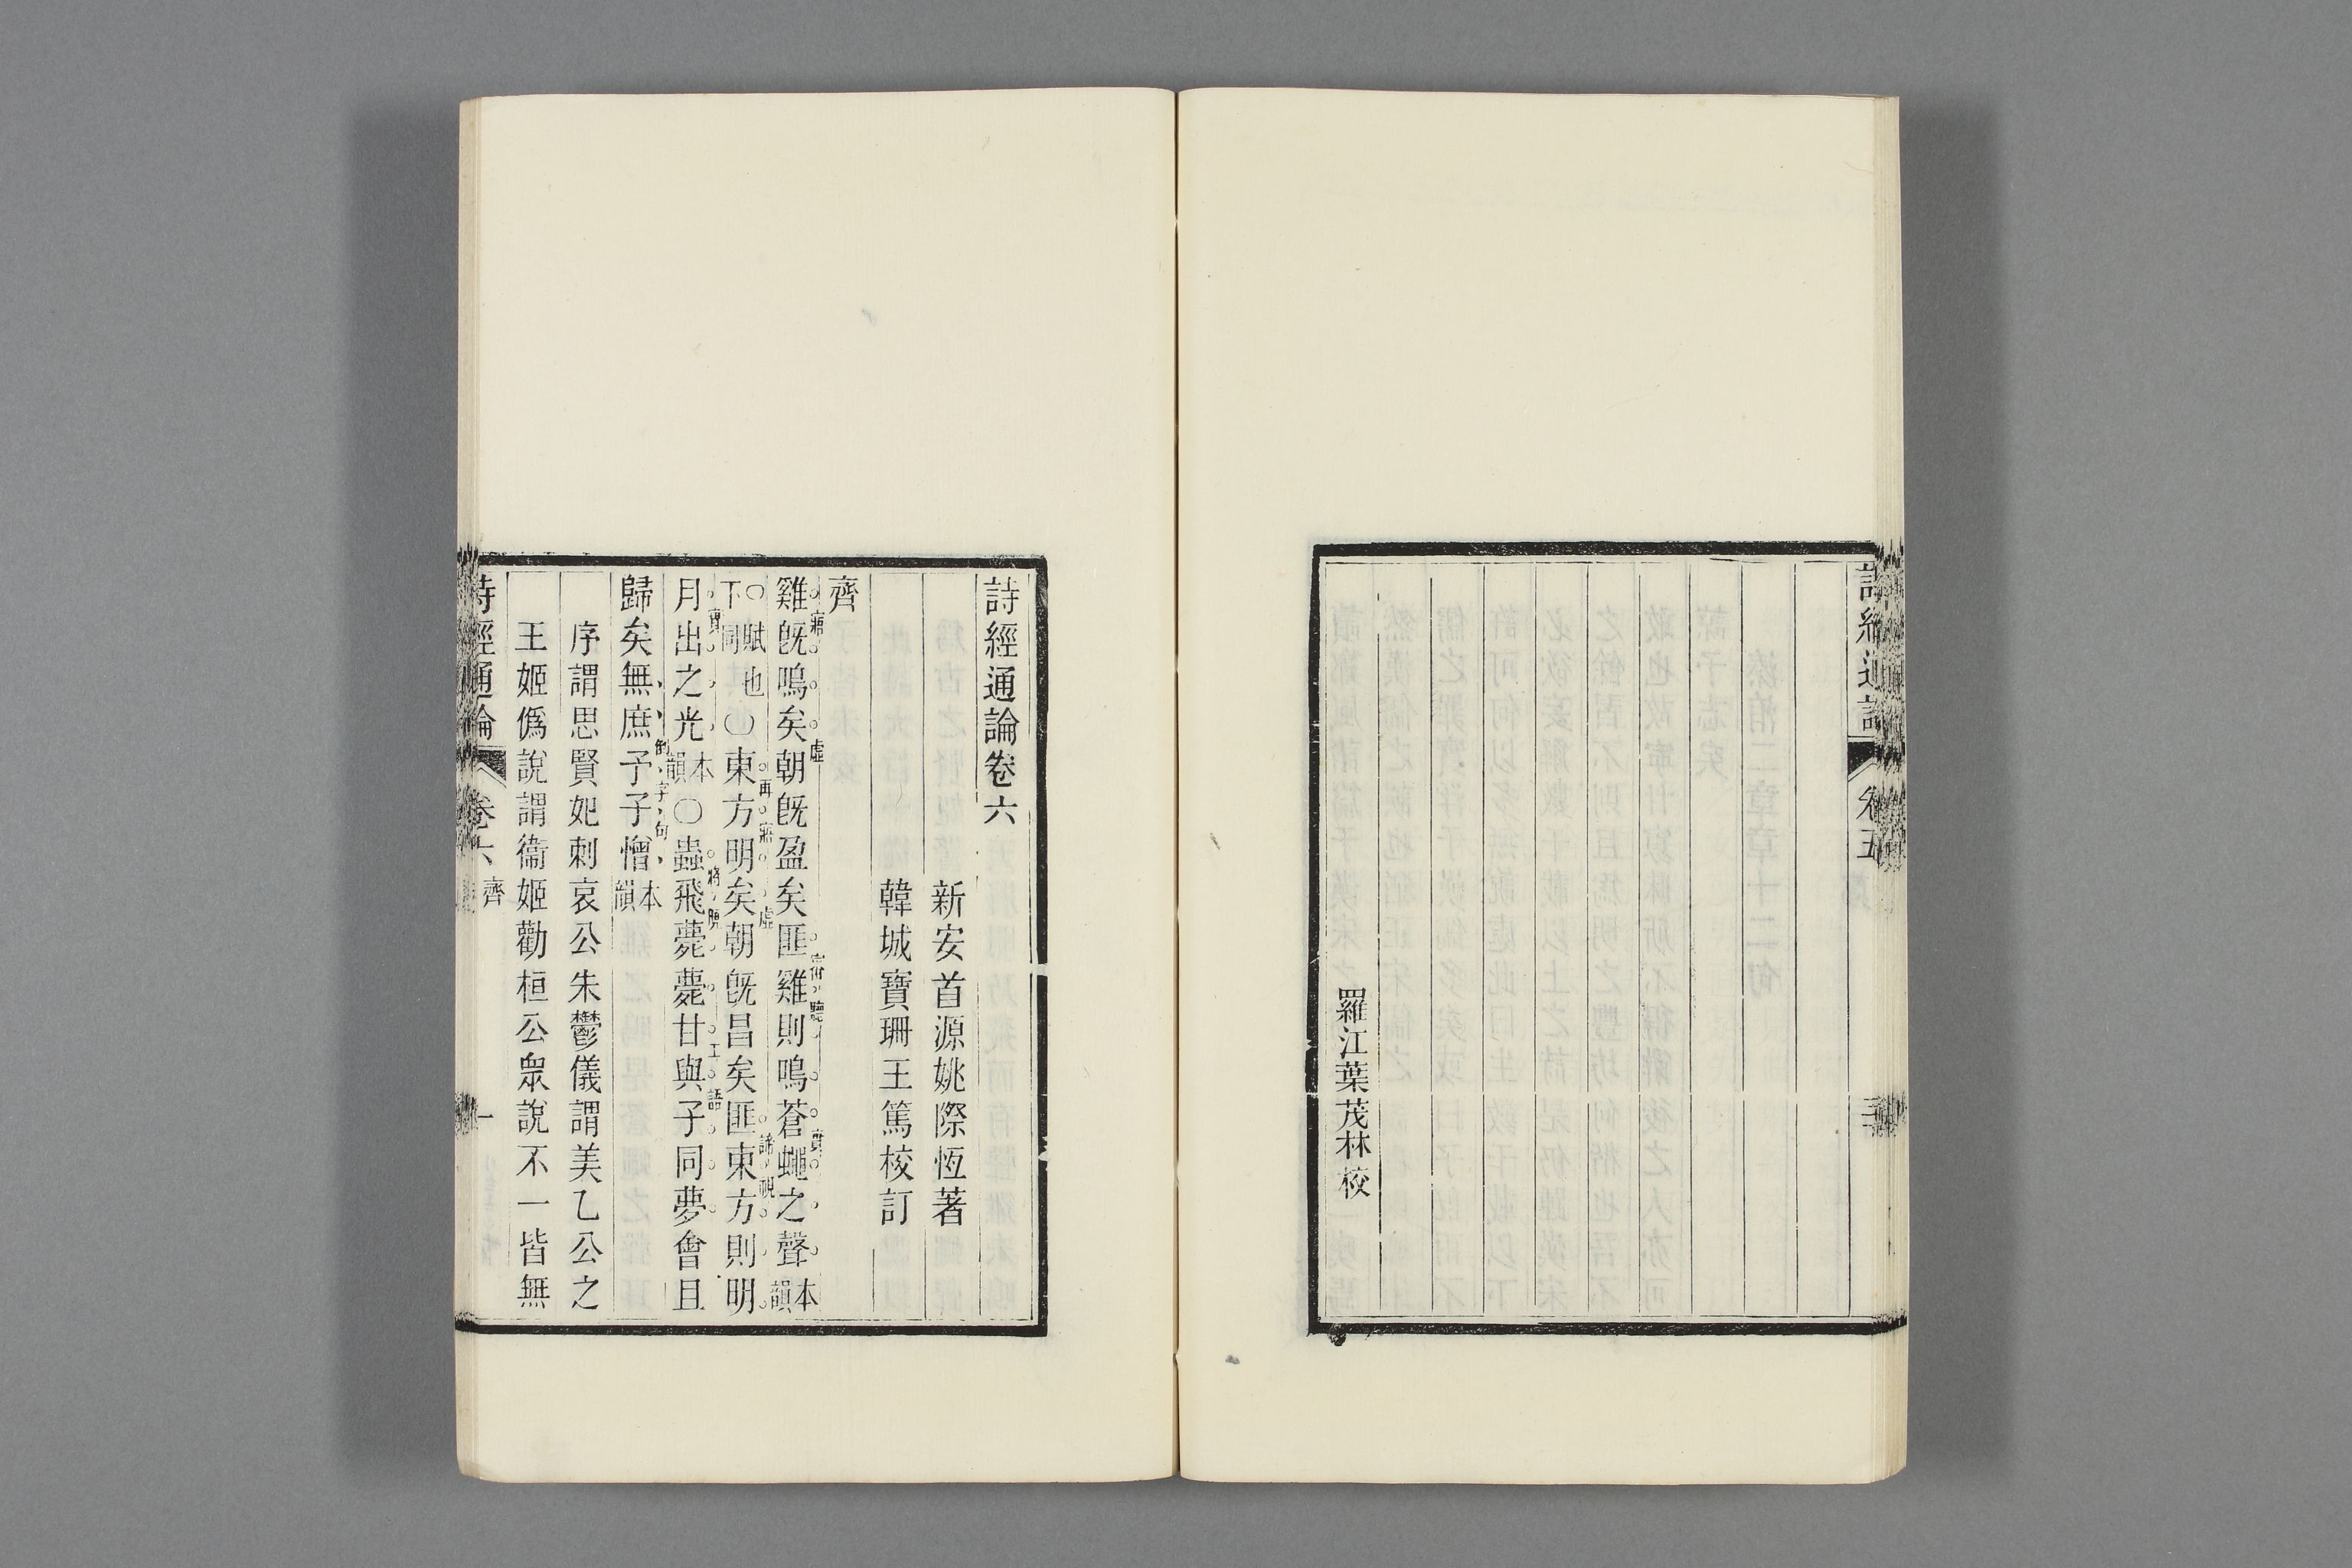 詩經通論
卷五
羅江葉茂林校
詩經通論卷六
新安首源姚際恆著
韓城寶珊王篤校訂
齊
雞旣鳴矣朝旣盈矣匪雞則鳴蒼蠅之聲本韻
○賦也下同○東方明矣朝旣昌矣匪東方則明
月出之光本韻○蟲飛薨薨甘與子同夢會且
歸矣無庶予子憎本韻
序謂思賢妃刺哀公朱鬱儀謂美乙公之
王姬僞說謂衞姬勸桓公衆說不一皆無
詩經通論
卷六
齊
一